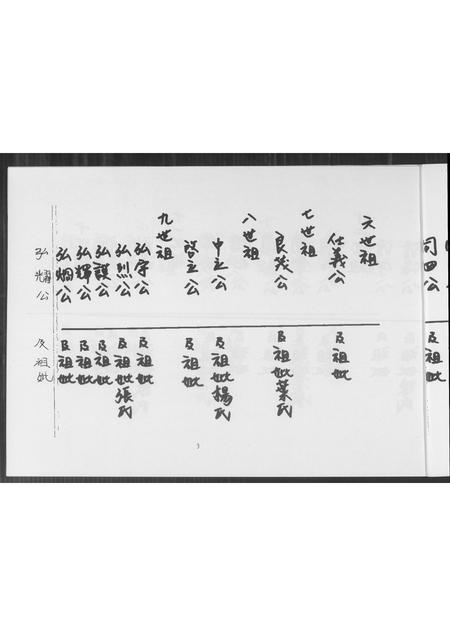 司四公 及祖妣
六世祖
仕義公 及祖妣
七世祖
良茂公 及祖妣葉氏
八世祖
中立公 及祖妣楊氏
啓立公 及祖妣
九世祖
弘宇公 及祖妣
弘烈公 及祖妣張氏
弘謨公 及祖妣
弘輝公 及祖妣
弘烱公 及祖妣
弘耀公 及祖妣
3